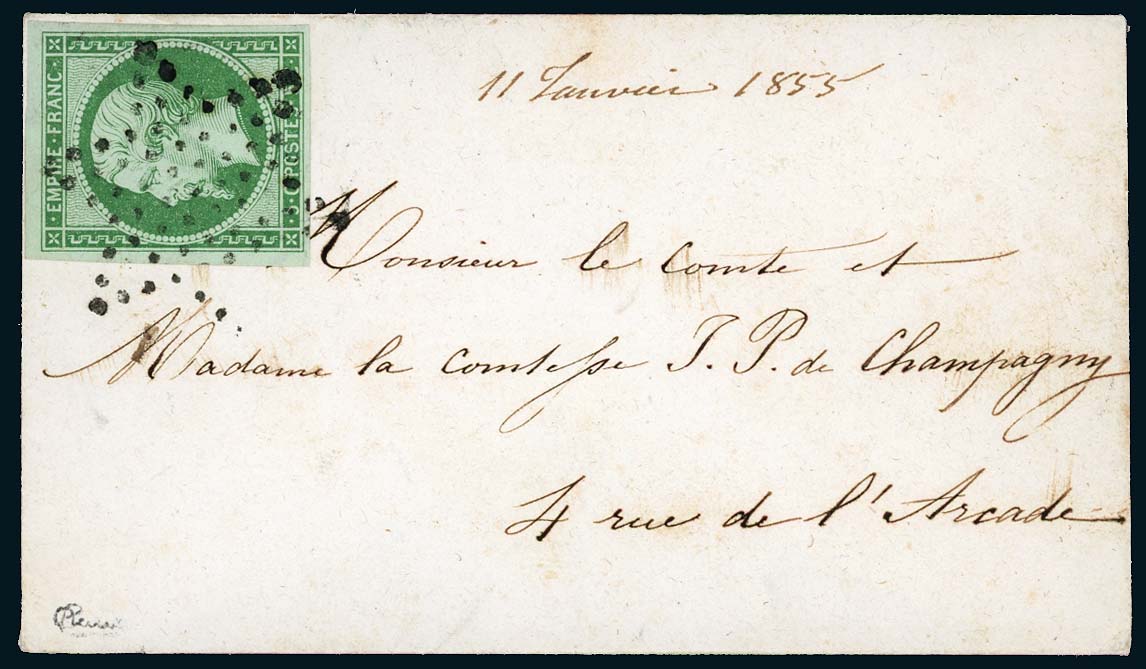 EMPIRE·FRANC·
POSTES
11 Janvier 1855
Monsieur le comte et
Madame la comtesse J. P. de Champagny
4 rue de l'Arcade